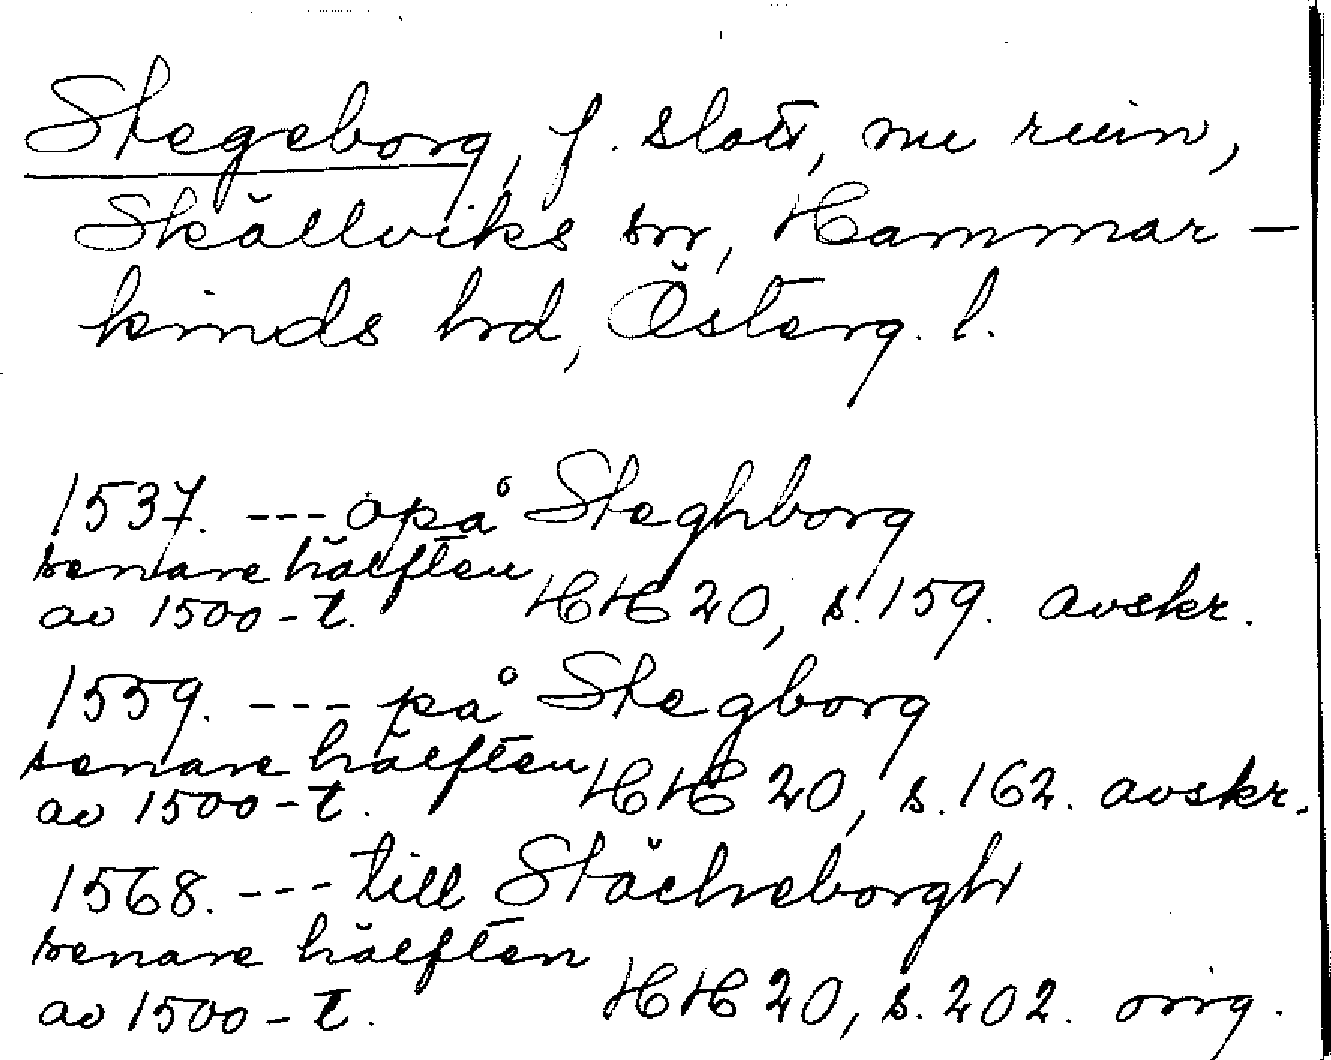 Stegeborg, f. slott, nu ruin,
Skällviks sn, Hammar-
kinds hd, Österg. l.
1537. --- opå Steghborg
senare hälften
av 1500-t. HH 20, s. 159. avskr.
1559. --- på Stegborg
senare hälften
av 1500-t. HH 20, s. 162. avskr.
1568. --- till Stächeborgh
senare hälften
av 1500-t. HH 20, s. 202. orig.